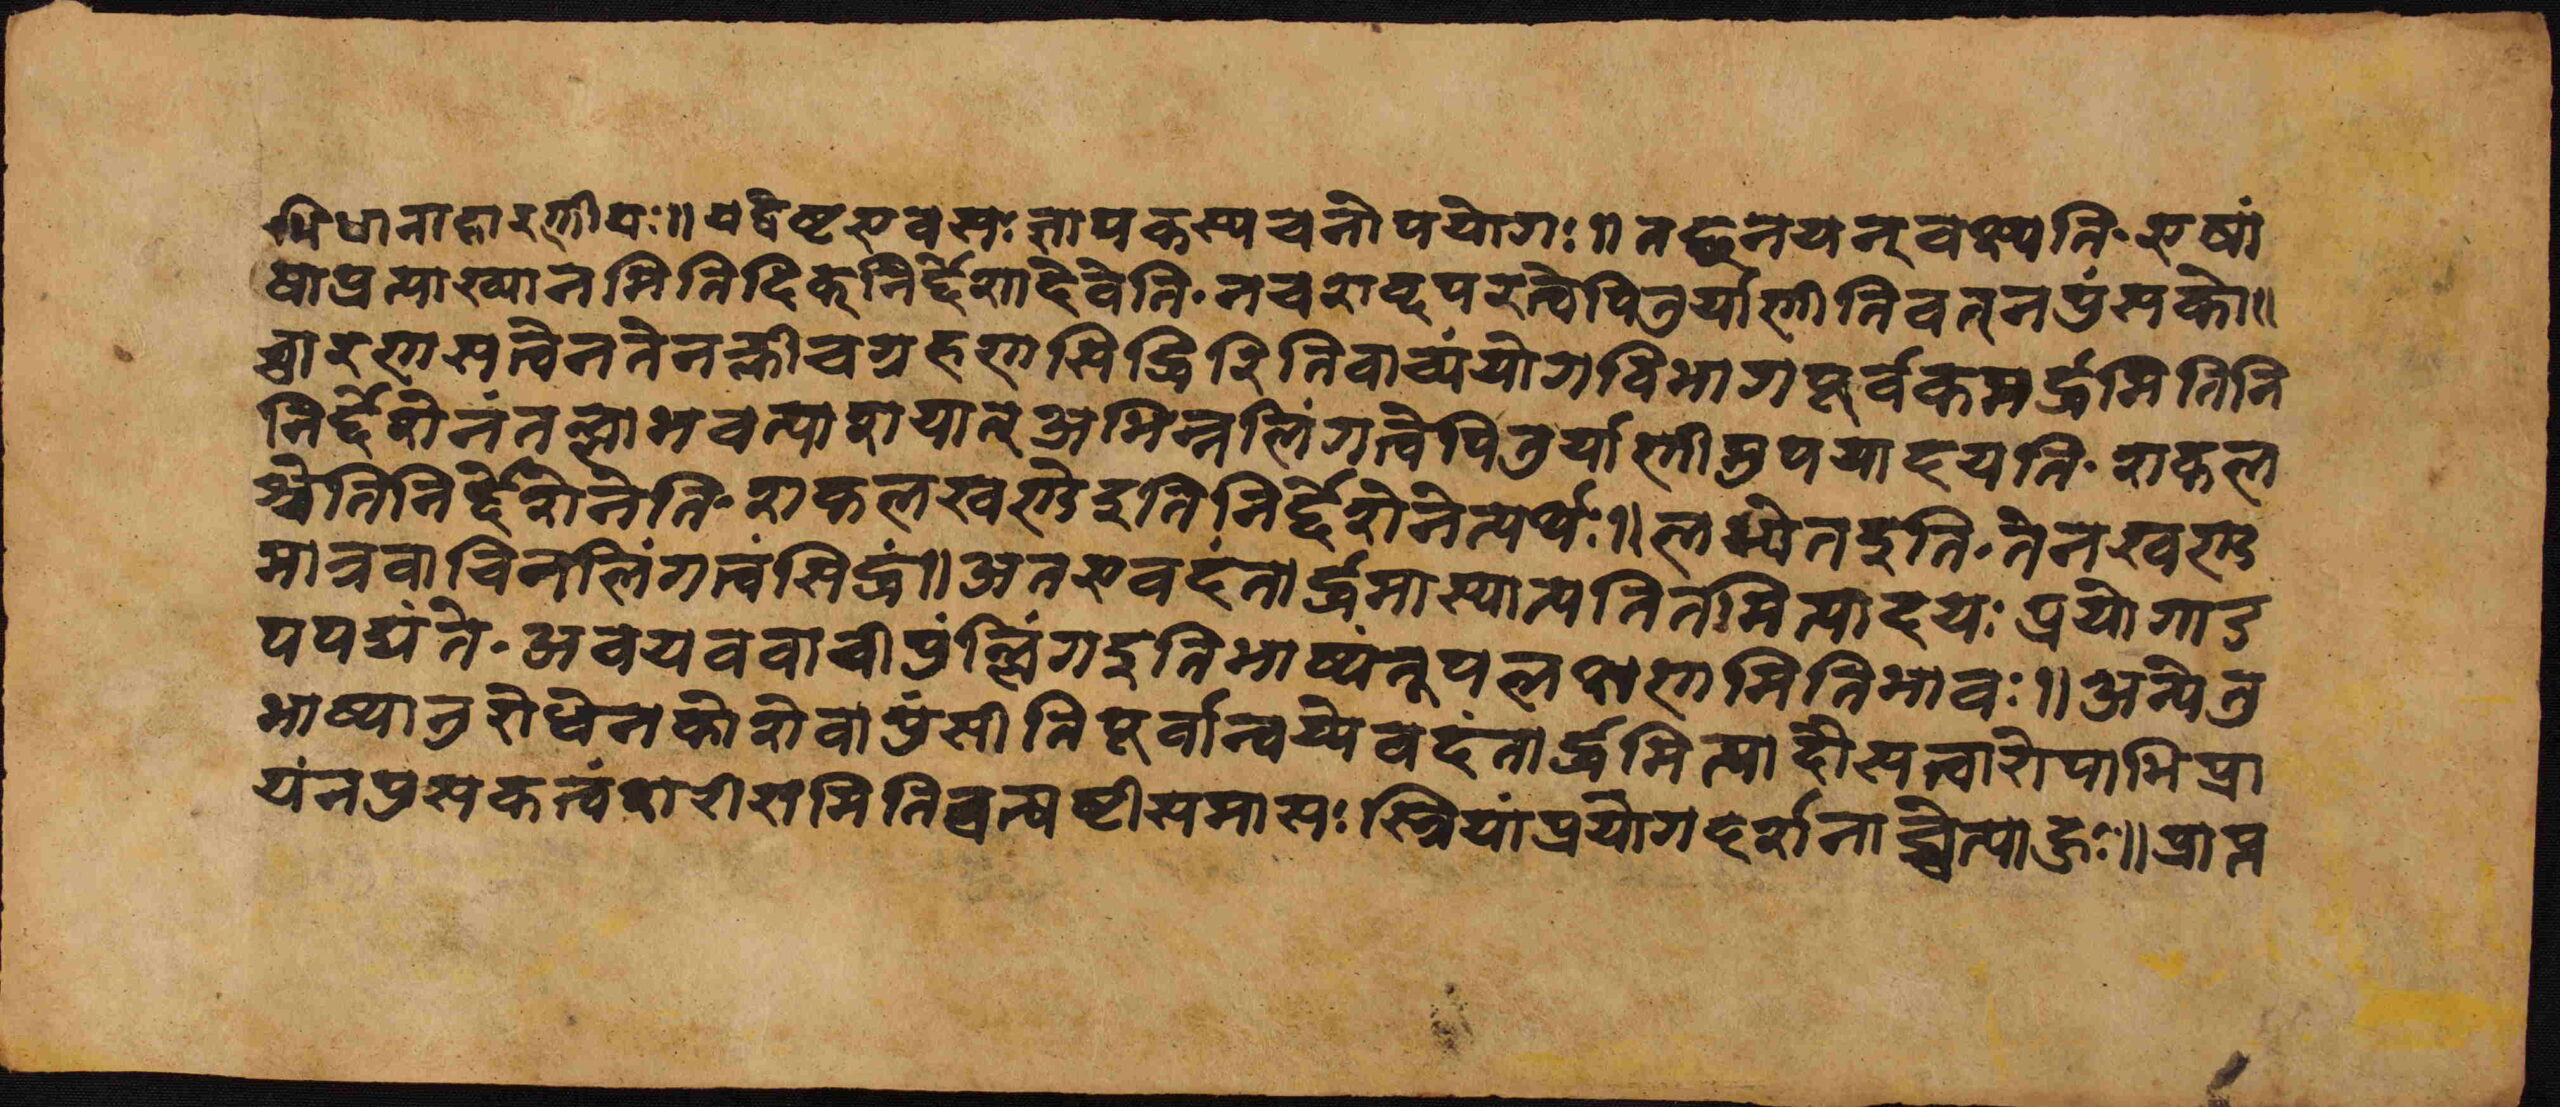 भिधानाद्वारणीयः॥ यद्वेष्टएवसः ज्ञापकस्यचनोपयोगः॥ तद्ध्वनयन्वक्ष्यति॰ एषां
षाप्रत्याख्यानमितिदिक् निर्द्देशादेवेति॰ नचशब्दपरत्वेपितुर्याणीतिवत्नपुंसके॥
च्चारणसत्वेनतेनक्लीवग्रहणसिद्धिरितिवाच्यंयोगविभागपूर्वकमर्द्धमितिनि
निर्द्देशेनंतल्लाभवत्याशयात् अभिन्नलिंगत्वेपितुर्याणीमुपपादयति॰ शकल
श्चेतिनिर्द्देशेनेति॰ शकलखण्डेइतिनिर्द्देशेनेत्यर्थः॥ लभ्येतइति॰ तेनखण्ड
मात्रवाचिनलिंगत्वंसिद्धं॥ अतएवदंतार्द्धमास्यात्पतितमित्यादयः प्रयोगाउ
पपद्यंते॰ अवयववाचीपुंल्लिंगइतिभाष्यंतूपलक्षणमितिभावः॥ अन्येतु
भाष्यानुरोधेनकोशेवापुंसीतिपूर्वान्वय्येवदंतार्द्धमित्यादौसत्वारोपाभिप्रा
यंनपुसकत्वंशरीरामितिवत्षष्टीसमासः स्त्रियांप्रयोगदर्शनाच्चेत्याहुः॥ प्राप्त